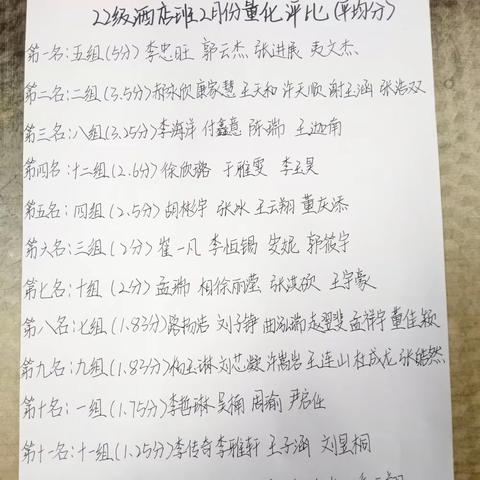 22级酒店班2月份量化评比(平均分)
第一名:五组(5分)李忠旺 郭云杰 张进展 吏文杰
第二名:二组(3.5分)郝咏欣康家慧 王天和 许天顺 谢玉涵 张浩双
第三名:八组(3.25分)李海洋 付鑫意 陈瑞 王迦南
第四名:十二组(2.6分)徐欣璐 于雁雯 李玉昊
第五名:四组(2.5分)胡彬宇 张冰 王云翔 董庆添
第六名:三组(2分)崔一凡 李恒锡 安妮 郭筱宇
第七名:十组(2分)孟瑞 相徐丽莹 张淇欣 王宇豪
第八名:七组(1.83分)路杨浩 刘子铮 曲泓瑞赵翌斐孟祥宇 董佳颖
第九名:九组(1.83分)杨玉琳刘芯凝许嵩岩 王连山 杜成龙 张皓然
第十名:一组(1.75分)李哲琳吴楠 周瑜 尹启任
第十一名:十一组(1.25分)李传奇李雅轩 王子涵 刘昱桐